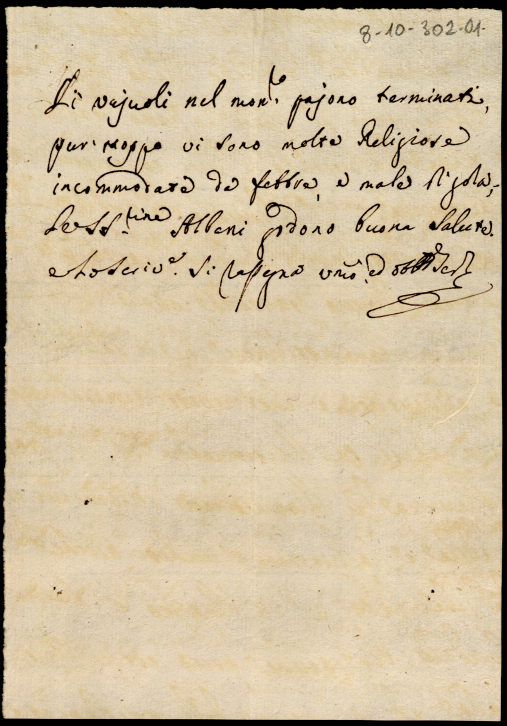 8-10-302-01-
Li vajuoli nel mon.ro pajono terminati,
pur troppo vi sono molte Religiose
incommodate da febbre, e male di gola,
Le SS.tine Albani godono buona salute.
e Lo scriv.e si rassegna um.o ed obb.mo